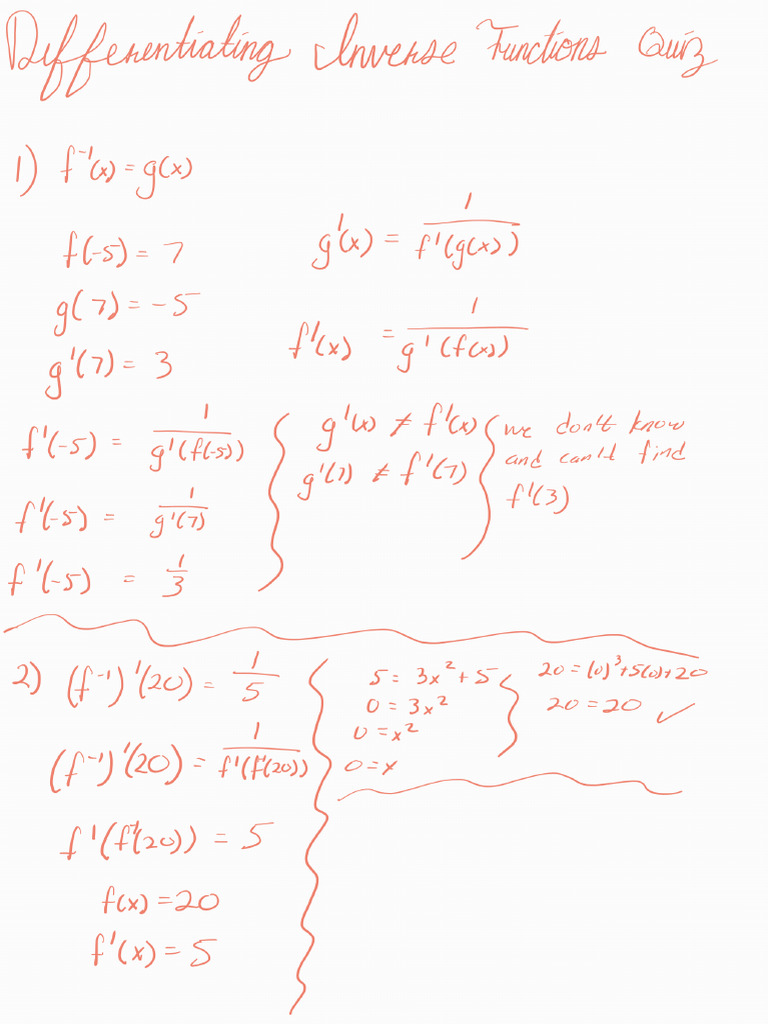 Differentiating Inverse Functions Quiz
1) f⁻¹(x) = g(x)
f(-5) = 7
g(7) = -5
g'(7) = 3
f'(-5) = 1/g'(f(-5))
f'(-5) = 1/g'(7)
f'(-5) = 1/3
g'(x) = 1/f'(g(x))
f'(x) = 1/g'(f(x))
g'(x) ≠ f'(x)
g'(7) ≠ f'(7)
we don't know
and can't find
f'(3)
2) (f⁻¹)'(20) = 1/5
(f⁻¹)'(20) = 1/f'(f⁻¹(20))
f'(f⁻¹(20)) = 5
f(x) = 20
f'(x) = 5
5 = 3x² + 5
0 = 3x²
0 = x²
0 = x
20 = (0)³ + 5(0) + 20
20 = 20 ✓